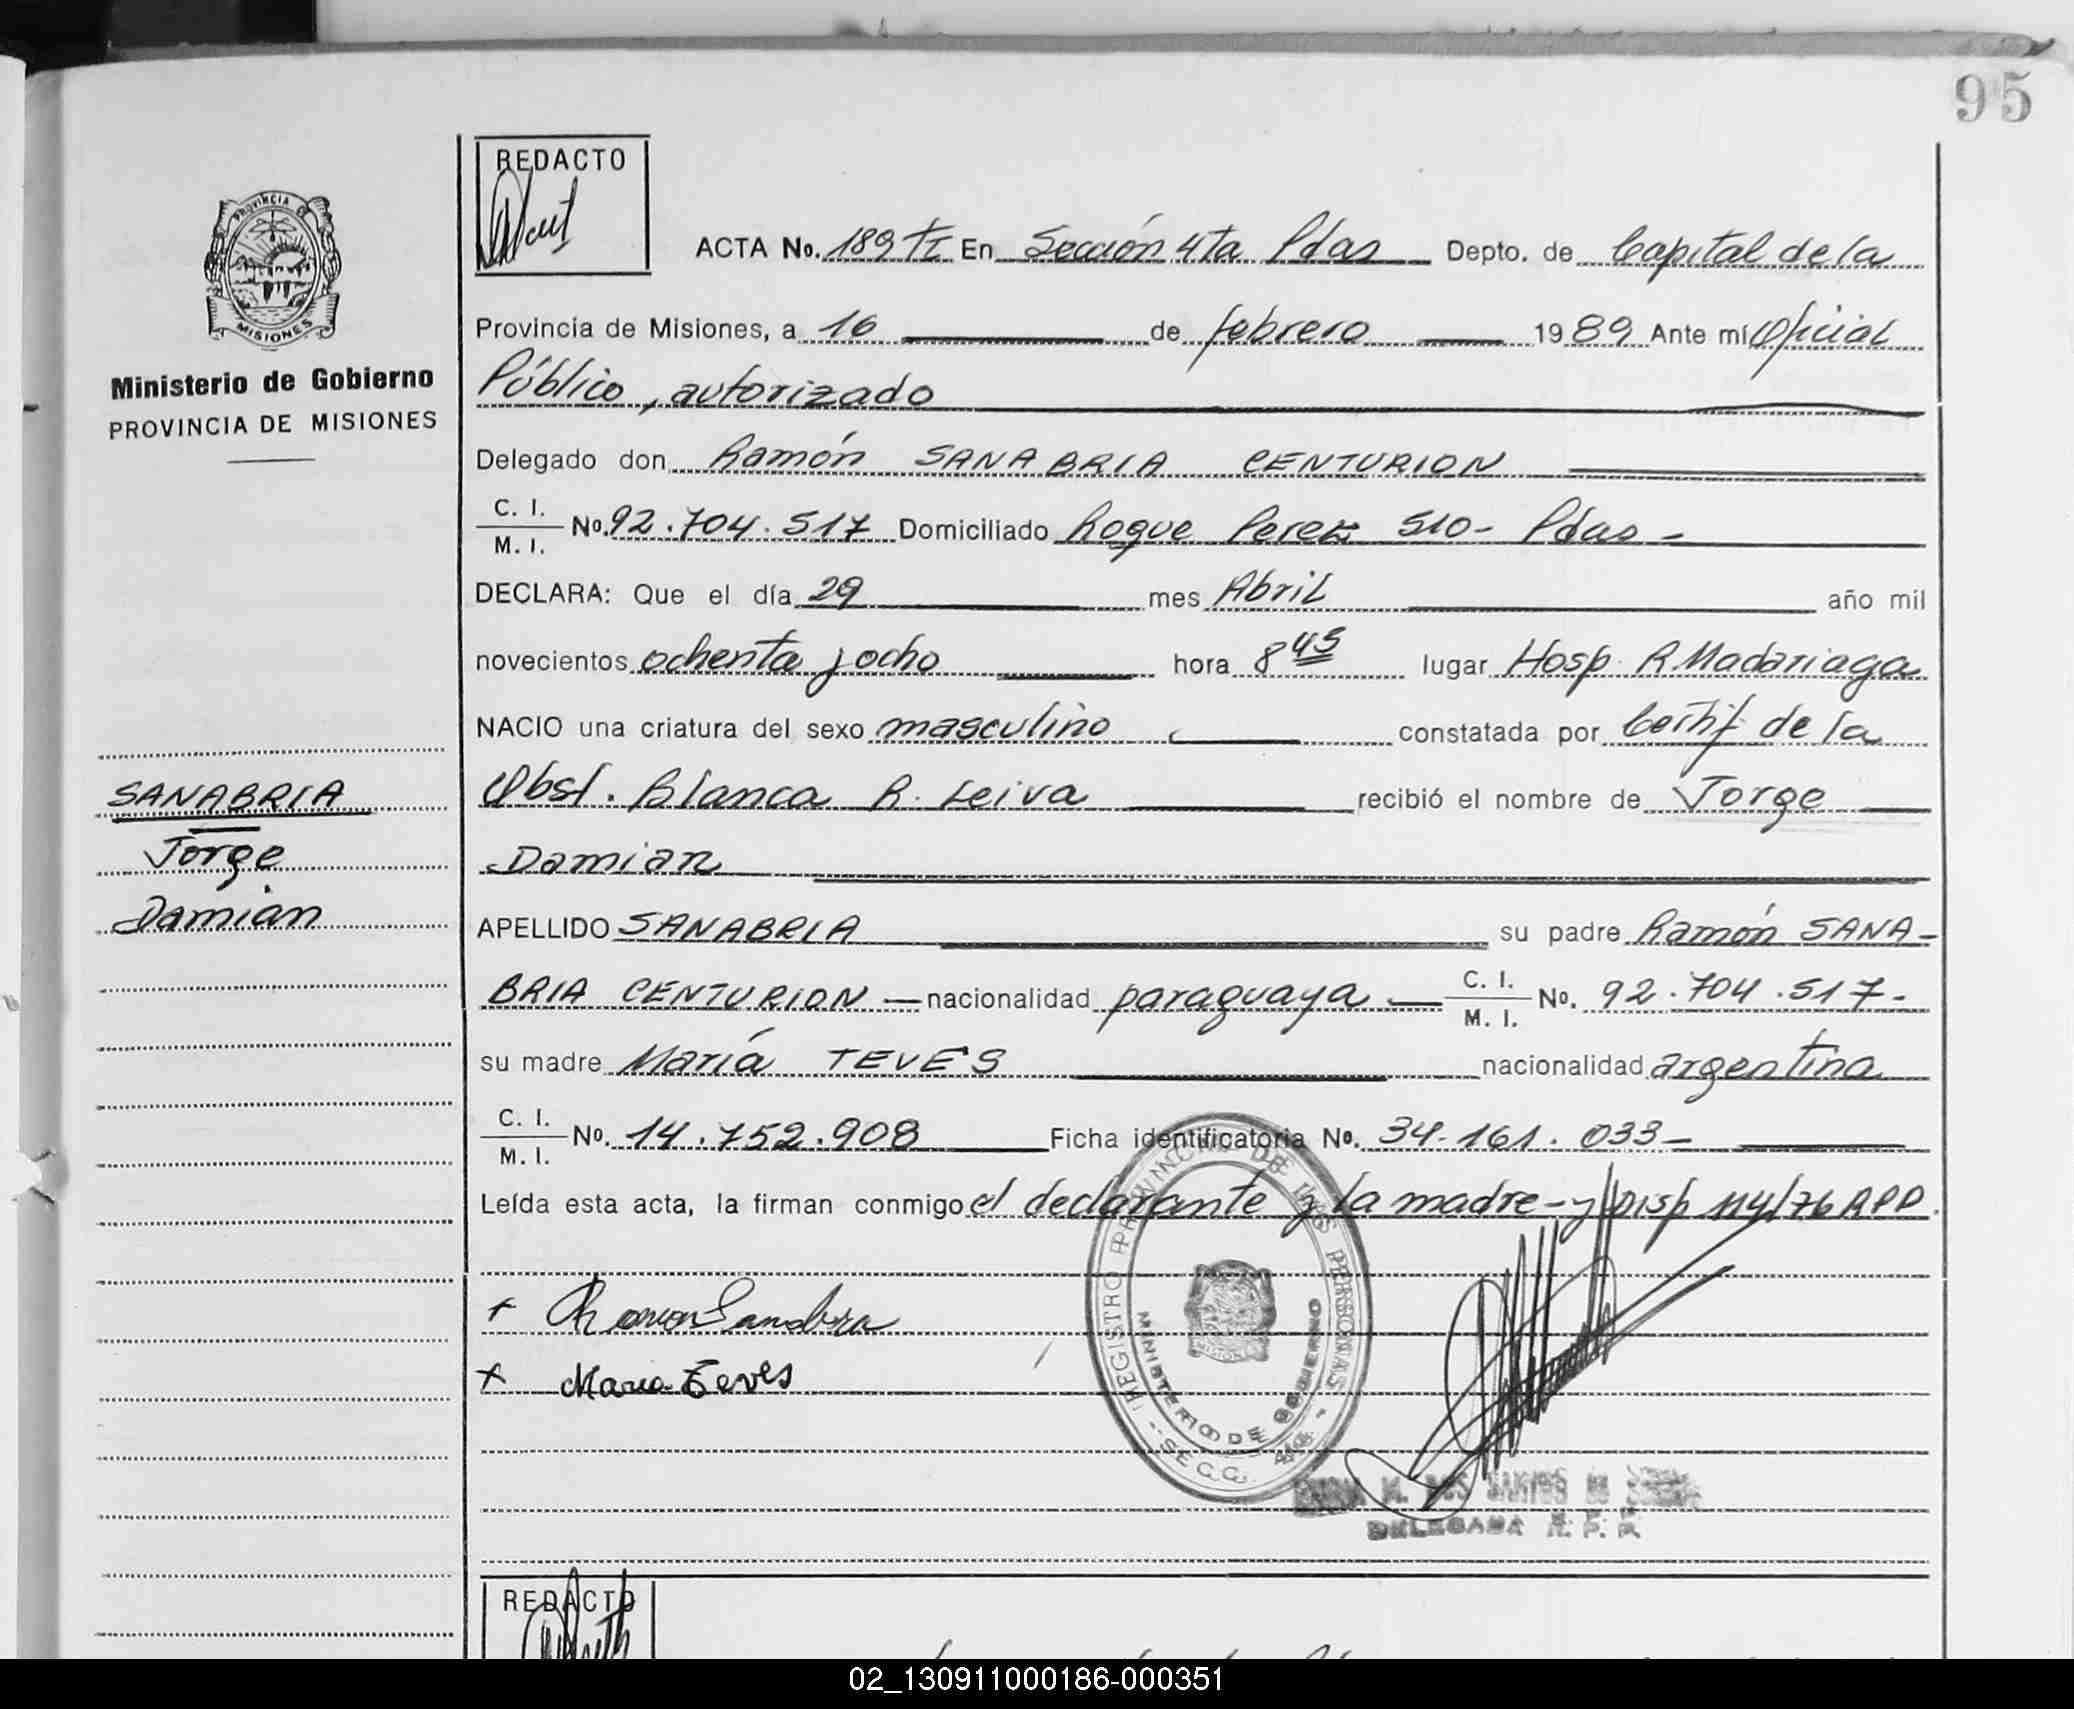 95
REDACTO
PROVINCIA D
MISIONES
Ministerio de Gobierno
PROVINCIA DE MISIONES
ACTA No. 189 TI En Sección 4ta Pdas Depto. de Capital de la
Provincia de Misiones, a 16 de febrero 1989 Ante mí Oficial
Público, autorizado
Delegado don Ramón SANABRIA CENTURION
C. I.
M. I. No. 92.704.517 Domiciliado Roque Perez 510- Pdas -
DECLARA: Que el día 29 mes Abril año mil
novecientos ochenta y ocho hora 8 45 lugar Hosp. R. Madariaga
NACIO una criatura del sexo masculino constatada por Certif de la
Obst. Blanca R. Leiva recibió el nombre de Jorge
Damian
SANABRIA
Jorge
Damián
APELLIDO SANABRIA su padre Ramón SANA-
BRIA CENTURION nacionalidad paraguaya C. I.
M. I. No. 92.704.517-
su madre María TEVES nacionalidad argentina
C. I.
M. I. No. 14.752.908 Ficha identificatoria No. 34.161.033-
Leída esta acta, la firman conmigo el declarante y la madre - y Disp 114/76 RPP.
+ Ramon Sanabria
+ Maria Teves
REGISTRO PROVINCIAL DE LAS PERSONAS
MINISTERIO DE GOBIERNO
MISIONES
SECC.
M. DOS SANTOS DE
DELEGADA R. P. P.
REDACTO
02_130911000186-000351